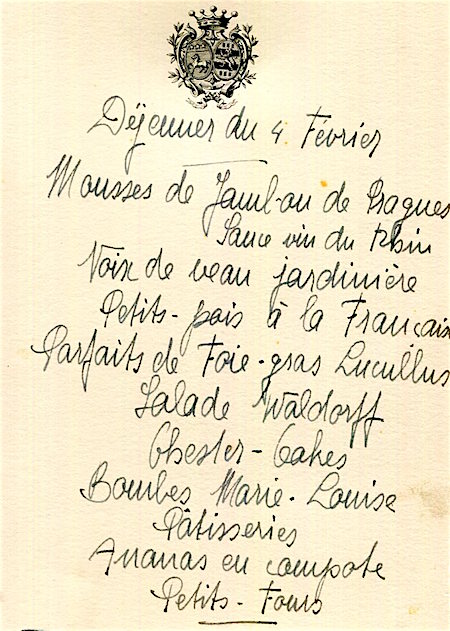 Déjeuner du 4 Février
Mousses de Jambon de Pragues
Sauce vin du Rhin
Noix de veau jardinière
Petits-pois à la Français
Parfaits de Foie-gras Lucullus
Salade Waldorff
Chester-Cakes
Bombes Marie-Louise
Pâtisseries
Ananas en compote
Petits-Fours